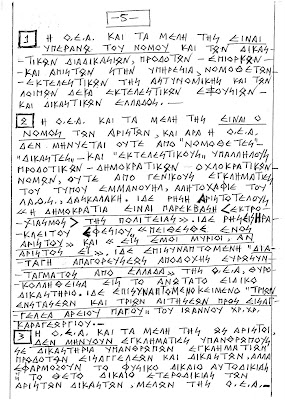 -5-
1 Η Ο.Ε.Α. ΚΑΙ ΤΑ ΜΕΛΗ ΤΗΣ ΕΙΝΑΙ
ΥΠΕΡΑΝΩ ΤΟΥ ΝΟΜΟΥ ΚΑΙ ΤΩΝ ΔΙΚΑΣ-
ΤΙΚΩΝ ΔΙΑΔΙΚΑΣΙΩΝ, ΠΡΟΔΟΤΩΝ - ΕΠΙΟΡΚΩΝ-
-ΚΑΙ ΑΡΙΣΤΩΝ ΣΤΗΝ ΥΠΗΡΕΣΙΑ, ΝΟΜΟΘΕΤΩΝ-
-ΕΚΤΕΛΕΣΤΙΚΩΝ ΤΗΣ ΑΣΤΥΝΟΜΙΚΗΣ ΚΑΙ ΤΩΝ
ΛΟΙΠΩΝ ΔΕΚΑ ΕΚΤΕΛΕΣΤΙΚΩΝ ΕΞΟΥΣΙΩΝ-
-ΚΑΙ ΔΙΚΑΣΤΙΚΩΝ ΕΛΛΑΔΟΣ.
2 Η Ο.Ε.Α. ΚΑΙ ΤΑ ΜΕΛΗ ΤΗΣ ΕΙΝΑΙ Ο
ΝΟΜΟΣ ΤΩΝ ΑΡΙΣΤΩΝ, ΚΑΙ ΑΡΑ Η Ο.Ε.Α.
ΔΕΝ ΜΗΝΥΕΤΑΙ ΟΥΤΕ ΑΠΟ "ΝΟΜΟΘΕΤΕΣ"-
"ΔΙΚΑΣΤΕΣ"- ΚΑΙ "ΕΚΤΕΛΕΣΤΙΚΟΥΣ" ΥΠΑΛΛΗΛΟΥΣ
ΠΡΟΔΟΤΙΚΩΝ - ΔΗΜΟΚΡΑΤΙΚΩΝ - ΟΧΛΟΚΡΑΤΙΚΩΝ
ΝΟΜΩΝ, ΟΥΤΕ ΑΠΟ ΓΕΝΙΚΟΥΣ ΕΓΚΛΗΜΑΤΙΕΣ
ΤΟΥ ΤΥΠΟΥ ΕΜΜΑΝΟΥΗΛ, ΑΛΗΤΟΧΑΦΙΕ ΤΟΥ
ΛΑ.Ο.Σ., ΔΑΣΚΑΛΑΚΗ, ΙΔΕ ΡΗΣΗ ΑΡΙΣΤΟΤΕΛΟΥΣ
«Η ΔΗΜΟΚΡΑΤΙΑ ΕΙΝΑΙ ΠΑΡΕΚΒΑΣΗ <ΕΚΤΡΟ-
ΧΙΑΣΜΟΣ> ΤΗΣ ΠΟΛΙΤΕΙΑΣ»., ΙΔΕ ΡΗΣΕΙΣ ΗΡΑ-
ΚΛΕΙΤΟΥ ΕΦΕΣΙΟΥ «ΠΕΙΘΕΣΘΕ ΕΝΟΣ
ΑΡΙΣΤΟΥ» ΚΑΙ «ΕΙΣ ΕΜΟΙ ΜΥΡΙΟΙ, ΑΝ
ΑΡΙΣΤΟΣ ΕΙ»., ΙΔΕ ΕΠΙΣΥΝΑΠΤΟΜΕΝΗ "ΔΙΑ-
ΤΑΓΗ ΑΠΑΓΟΡΕΥΣΕΩΣ ΑΠΟΔΟΧΗΣ ΕΥΡΩΣΥΝ-
ΤΑΓΜΑΤΟΣ ΑΠΟ ΕΛΛΑΔΑ» ΤΗΣ Ο.Ε.Α, ΘΥΡΟ-
ΚΟΛΛΗΘΕΙΣΑ ΕΙΣ ΤΟ ΑΝΩΤΑΤΟ ΕΙΔΙΚΟ
ΔΙΚΑΣΤΗΡΙΟ. ΙΔΕ ΕΠΙΣΥΝΑΠΤΟΜΕΝΟ ΚΕΙΜΕΝΟ "ΤΡΙΩΝ
ΕΝΣΤΑΣΕΩΝ ΚΑΙ ΤΡΙΩΝ ΑΙΤΗΣΕΩΝ ΠΡΟΣ ΕΙΣΑΓ-
ΓΕΛΕΑ ΑΡΕΙΟΥ ΠΑΓΟΥ" ΤΟΥ ΙΩΑΝΝΟΥ ΧΡ. ΧΡ.
ΚΑΡΑΓΕΩΡΓΙΟΥ.
3 Η Ο.Ε.Α. ΚΑΙ ΤΑ ΜΕΛΗ ΤΗΣ ΩΣ ΑΡΙΣΤΟΙ,
ΔΕΝ ΜΗΝΥΟΥΝ ΕΓΚΛΗΜΑΤΙΕΣ ΥΠΑΝΘΡΩΠΟΥΣ
ΣΕ ΔΙΚΑΣΤΗΡΙΑ ΥΠΑΝΘΡΩΠΩΝ ΕΓΚΛΗΜΑΤΙΩΝ
ΠΡΟΔΟΤΩΝ ΕΙΣΑΓΓΕΛΕΩΝ ΚΑΙ ΔΙΚΑΣΤΩΝ, ΑΛΛΑ
ΕΦΑΡΜΟΖΟΥΝ ΤΟ ΦΥΣΙΚΟ ΔΙΚΑΙΟ ΑΥΤΟΔΙΚΙΑΣ
ΤΟ ΘΕΤΟ ΔΙΚΑΙΟ ΕΤΕΡΟΔΙΚΙΑΣ ΤΩΝ
ΑΡΙΣΤΩΝ ΔΙΚΑΣΤΩΝ, ΜΕΛΩΝ ΤΗΣ Ο.Ε.Α.-